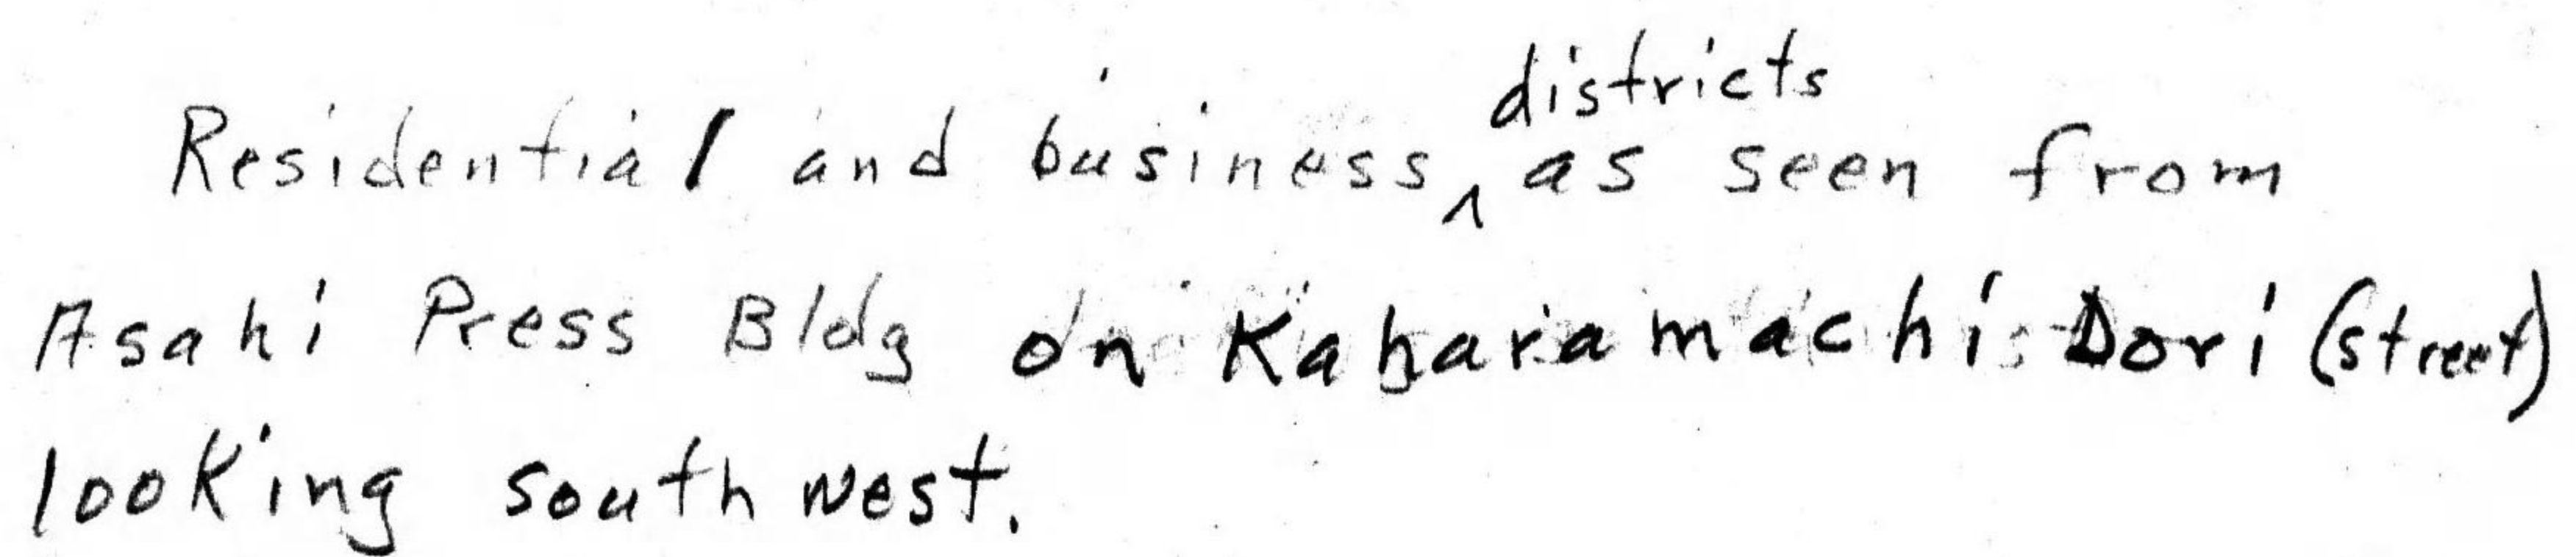 Residential and business districts as seen from
Asahi Press Bldg on Kaharamachi Dori (street)
looking southwest.